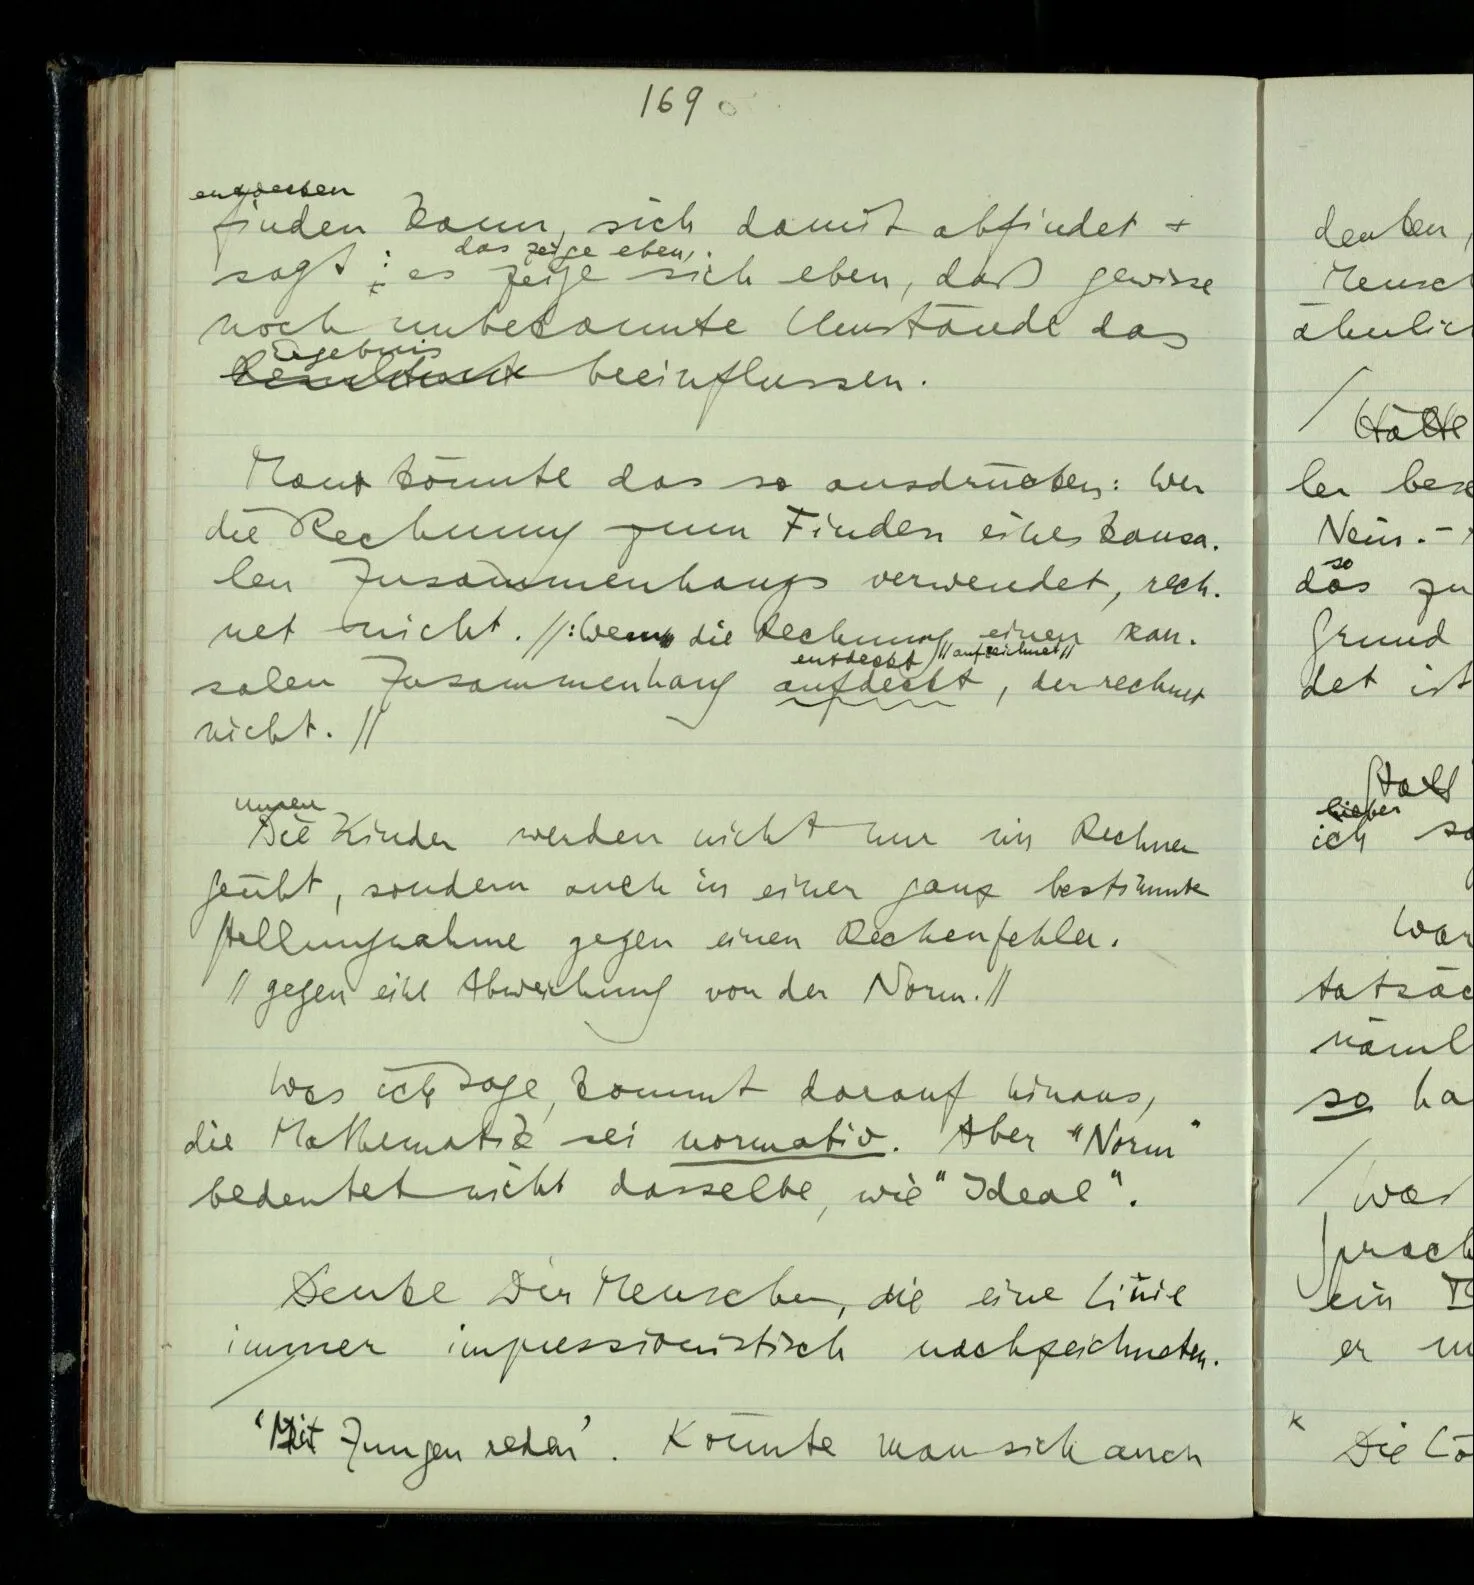 169
entdecken
finden kann, sich damit abfindet +
das zeige eben,
sagt: es zeige sich eben, daß gewisse
noch unbekannte Umstände das
Ergebnis
Resultat beeinflussen.
Man könnte das so ausdrücken: Wer
die Rechnung zum Finden eines kausa-
len Zusammenhangs verwendet, rech-
net nicht. //: Wem die Rechnung einen kau-
entdeckt // aufzeichnet //
salen Zusammenhang aufdeckt, der rechnet
nicht. //
unsere
Die Kinder werden nicht nur im Rechnen
geübt, sondern auch in einer ganz bestimmten
Stellungnahme gegen einen Rechenfehler.
// gegen eine Abweichung von der Norm. //
Was ich sage, kommt darauf hinaus,
die Mathematik sei normativ. Aber "Norm"
bedeutet nicht dasselbe, wie "Ideal".
Denke Dir Menschen, die eine Linie
immer impressionistisch nachzeichneten.
'Mit Zungen reden'. Könnte man sich auch
denken,
Mensch
ähnlich
Hätte
ler bes
Nein. –
so
das zu
Grund
det ist
Statt
lieber
ich so
War
tatsäc
näml
so ha
/ War
Sprach
ein
er
Die